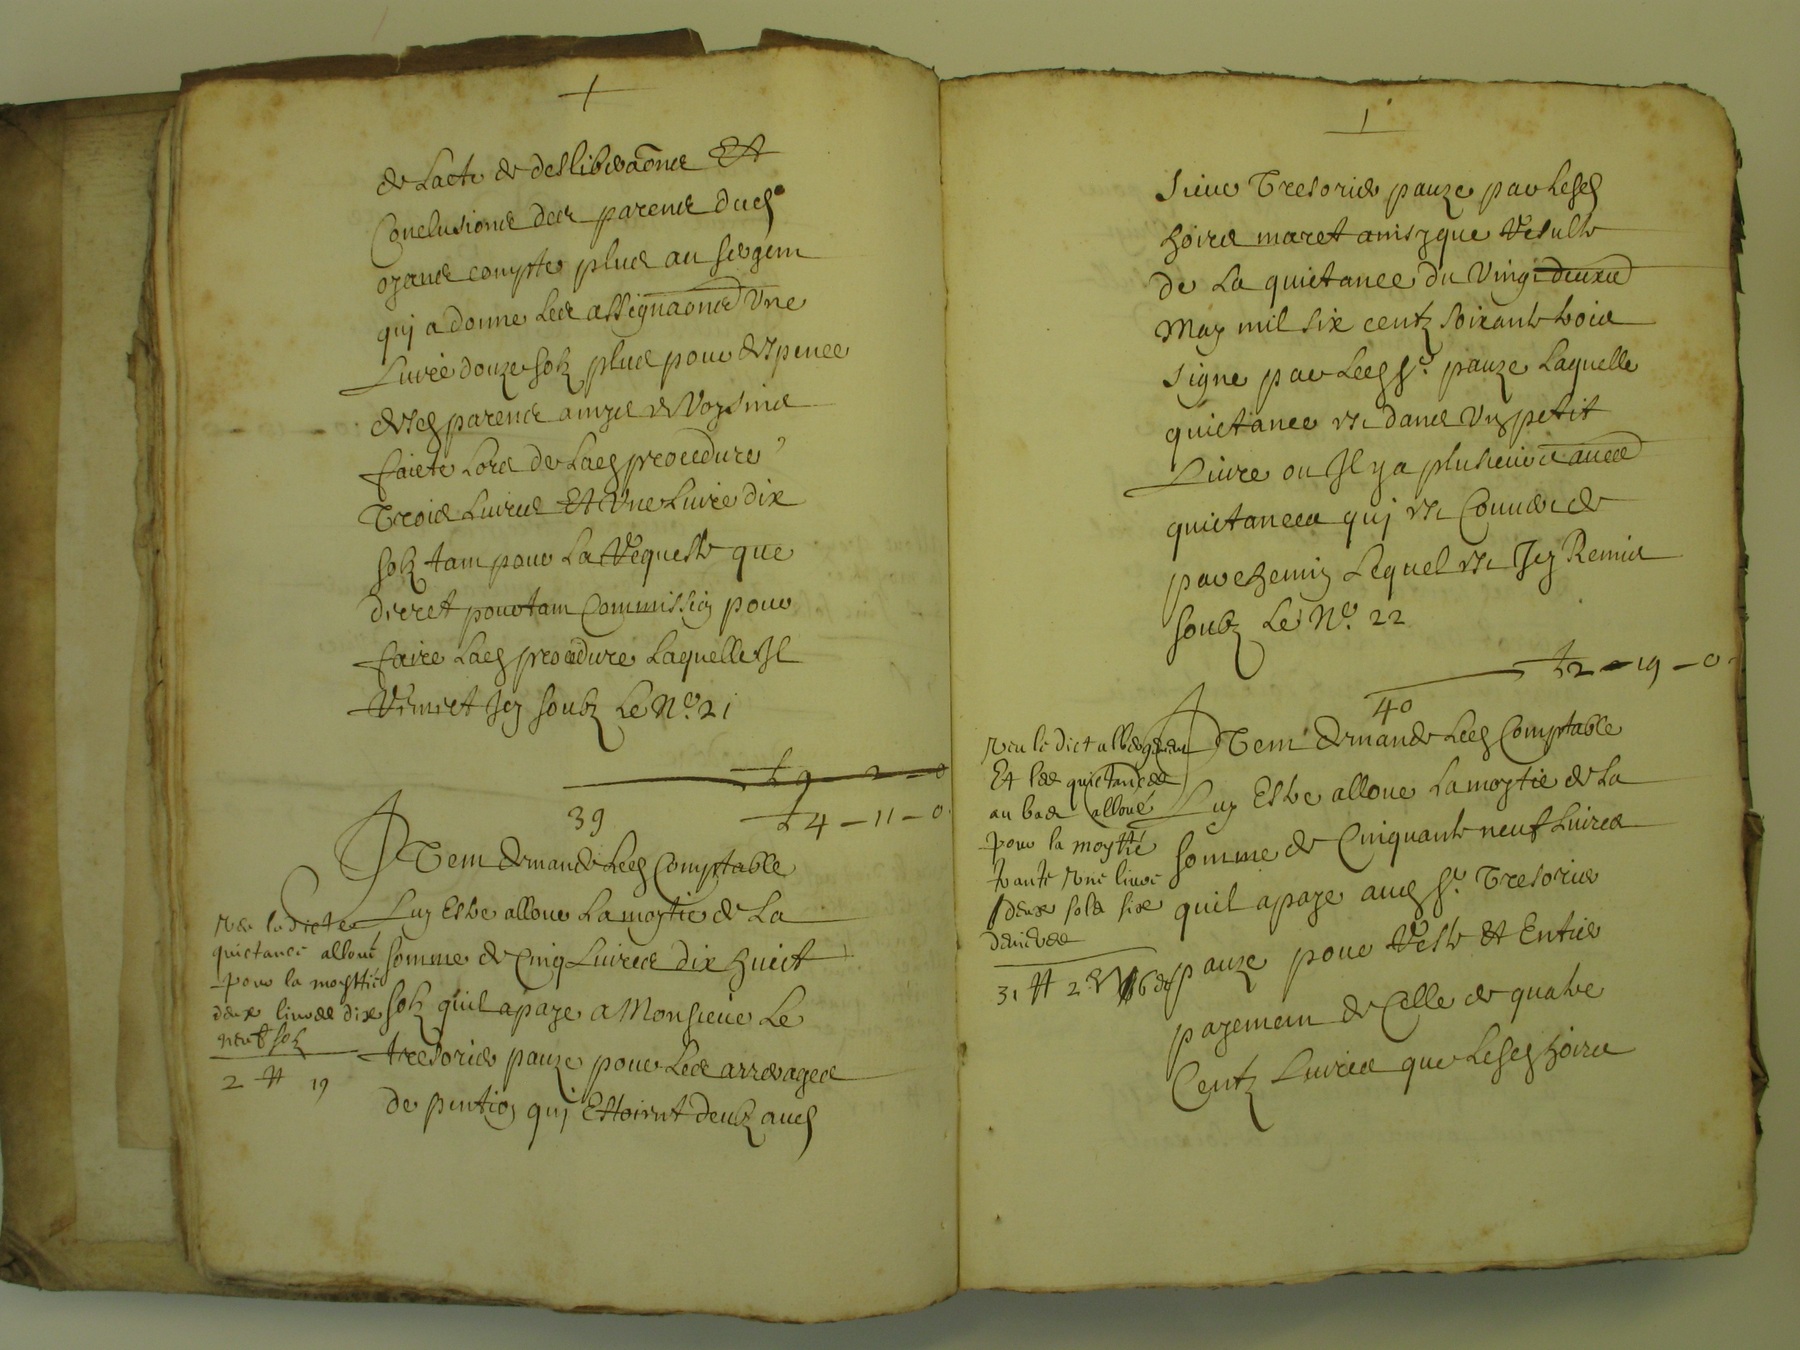 de Lacte de desliberaõns Et
Conclusions des parens dud.
oyant compte plus au sergent
quj a donne Les assignaõns Vne
Livre douze solz plus pour despence
desd parens amys et Voysins
faicte Lors de Lad procedure
Trois Livres Et Vne Livre dix
solz tant pour La Requeste que
decret portant Commission pour
faire Lad procedure Laquelle Il
Remet Icy soubz Le No. 21
9 - 2 - 0
39
4 - 11 - 0
ITem demande Led Comptable
Luy Estre alloue La moytie de La
somme de Cinq Livres dix huict
solz quil a paye a Monsieur Le
tresorier pauze pour Les arrerages
de pention quj Estoient deubz aud
Veu la dicte
quictance alloué
pour la moyttie
deux livres dix
neuf solz
2 ℔ 19
1
sieur Tresorier pauze par Lesd
hoirs maret ainsy que Resulte
de La quictance du Vingt deuxe
May mil six centz soixante trois
signe par Led Sr. pauze Laquelle
quictance est dans Vng petit
Livre ou Il y a plusieurs autres
quictances quj est Couvert de
parchemin Lequel est Icy Remis
soubz Le No. 22
2 - 19 - 0
40
ITem demande Led Comptable
Luy Estre alloue La moytie de La
somme de Cinquante neuf Livres
quil a paye aud Sr. Tresorier
pauze pour Reste Et Entier
payement de Celle de quatre
Centz Livres que Lesd hoirs
Veu le dict
Et les quictances
au bas alloué
pour la moyttié
trante Vne livre
deux sols six
deniers
31 ℔ 2 s 6 d